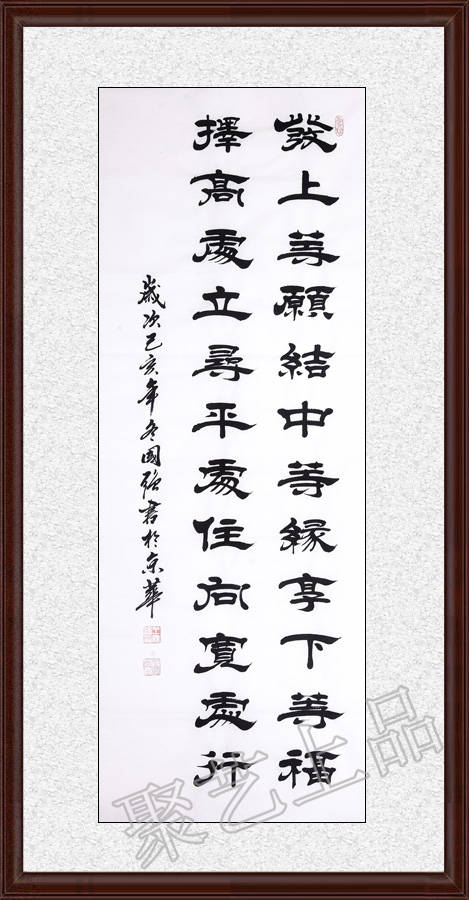 發上等願結中等緣享下等福
擇高處立尋平處住向寬處行
歲次己亥年冬國強書於京華
聚艺上品